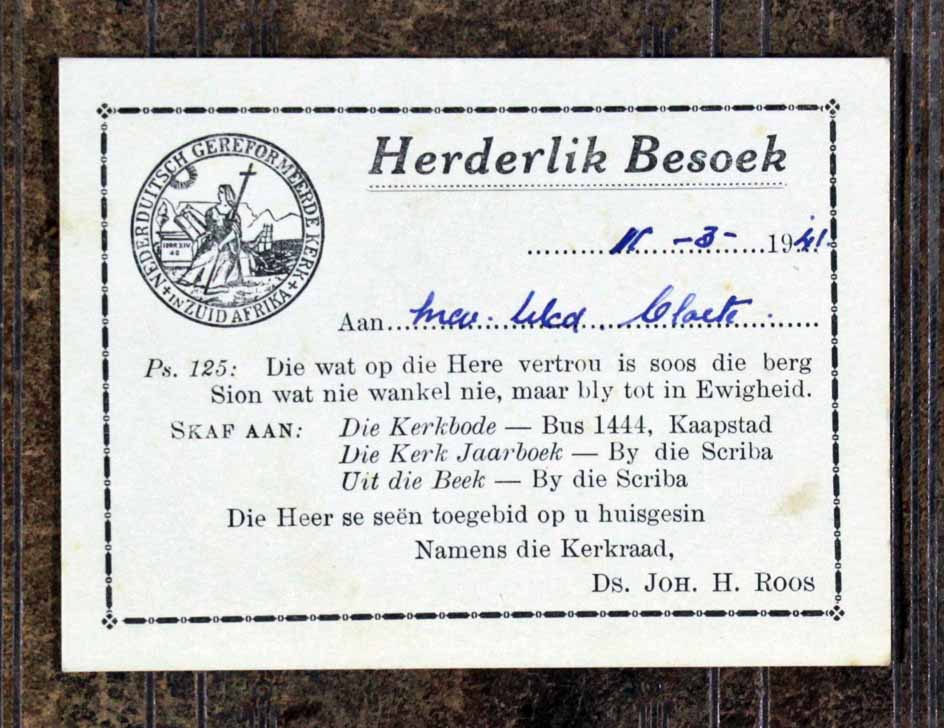 NEDERDUITSCH GEREFORMEERDE KERK
IN ZUID AFRIKA
Herderlik Besoek
11 -3- 1941.
Aan mev. Cloete.
Ps. 125: Die wat op die Here vertrou is soos die berg
Sion wat nie wankel nie, maar bly tot in Ewigheid.
SKAF AAN: Die Kerkbode — Bus 1444, Kaapstad
Die Kerk Jaarboek — By die Scriba
Uit die Beek — By die Scriba
Die Heer se seën toegebid op u huisgesin
Namens die Kerkraad,
DS. JOH. H. ROOS